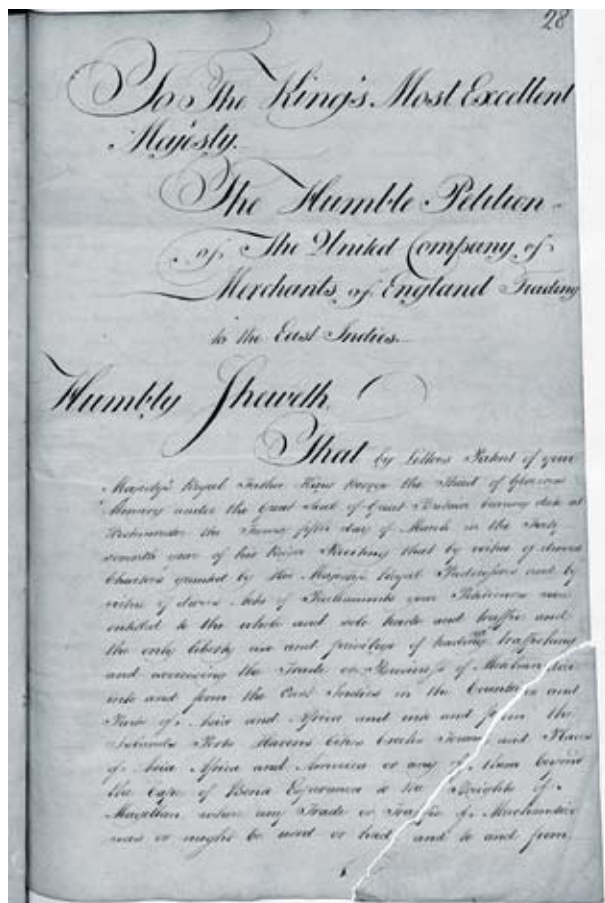 28
To The King's Most Excellent
Majesty.
The Humble Petition
of The United Company of
Merchants of England Trading
to the East Indies.
Humbly Sheweth
That by Letters Patent of your
Majesty's Royal Father King George the Third of Glorious
Memory under the Great Seal of Great Britain bearing date at
Westminster the Twenty fifth day of March in the Forty
seventh year of his Reign Reciting that by virtue of divers
Charters granted by His Majesty's Royal Predecessors and by
virtue of divers Acts of Parliament your Petitioners were
entitled to the whole and sole trade and traffic and
the only liberty use and privilege of trading trafficking
and exercising the Trade or Business of Merchandize
into and from the East Indies in the Countries and
Parts of Asia and Africa and into and from the
Islands Ports Havens Cities Creeks Towns and Places
of Asia Africa and America or any of them beyond
the Cape of Bona Esperanza to the Streights of
Magellan where any Trade or Traffic of Merchandize
was or might be used or had and to and from